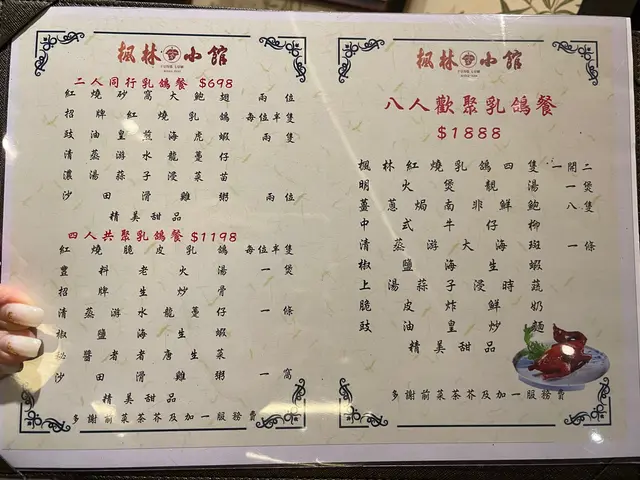 楓林小館
二人同行乳鴿餐 $698
紅燒砂窩大鮑翅 兩位
招牌紅燒乳鴿 每位半隻
豉油皇煎海虎蝦 兩隻
清蒸游水龍躉仔
濃湯蒜子浸菜苗
沙田滑雞粥 兩位
精美甜品
四人共聚乳鴿餐 $1198
紅燒脆皮乳鴿 每位半隻
豐料老火湯 一煲
招牌生炒骨
清蒸游水龍躉仔 一條
椒鹽海生蝦
秘醬者者唐生菜
沙田滑雞粥 一窩
精美甜品
多謝前菜茶芥及加一服務費
楓林小館
八人歡聚乳鴿餐
$1888
楓林紅燒乳鴿四隻 一開二
明火煲靚湯 一煲
薑蔥焗南非鮮鮑 八隻
中式牛仔柳
清蒸游大海斑 一條
椒鹽海生蝦
上湯蒜子浸時蔬
脆皮炸鮮奶
豉油皇炒麵
精美甜品
多謝前菜茶芥及加一服務費